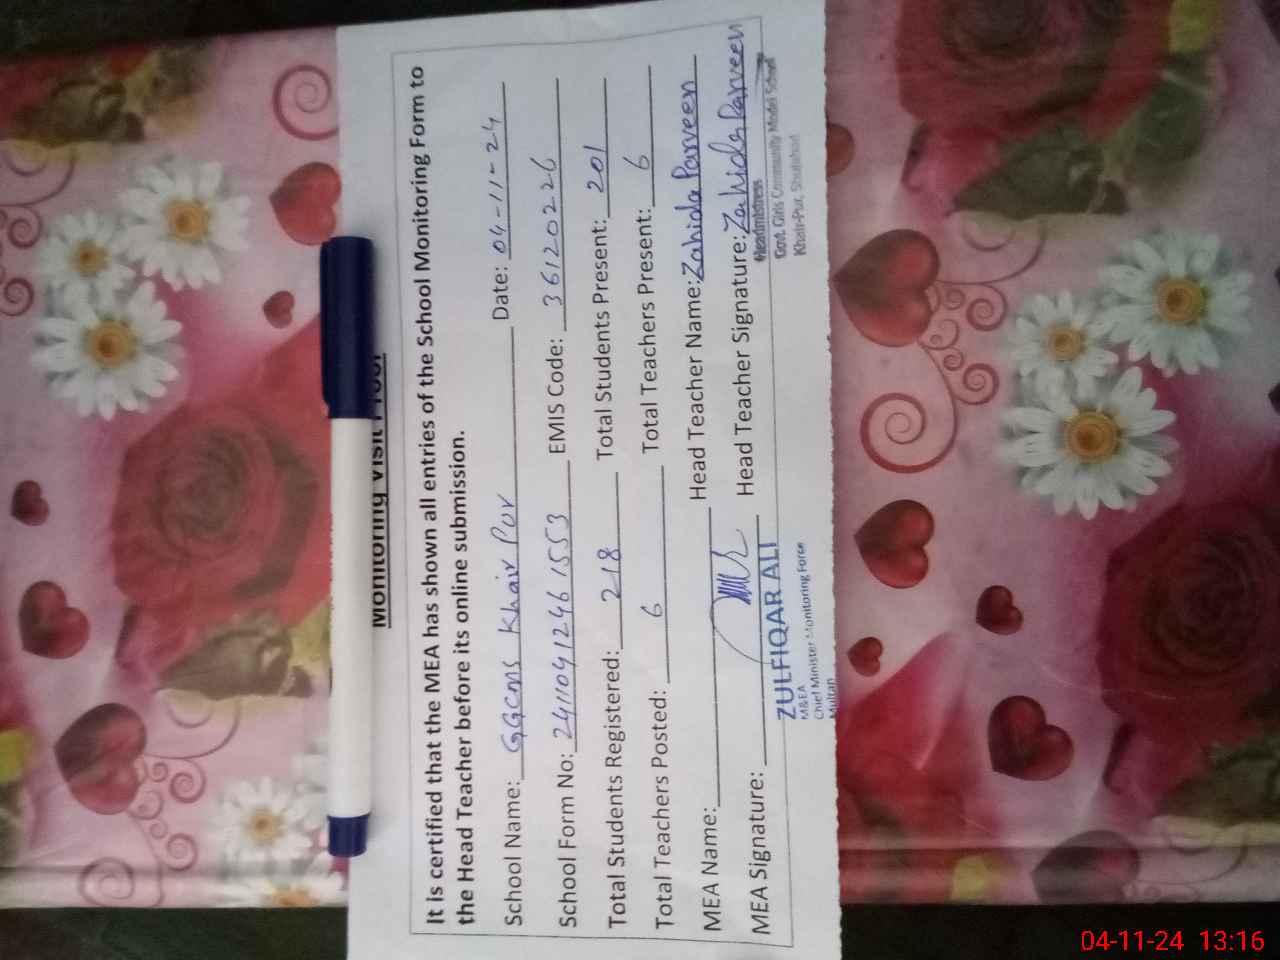 Monitoring Visit Proof
It is certified that the MEA has shown all entries of the School Monitoring Form to
the Head Teacher before its online submission.
School Name: GGCMS Khair Pur Date: 04-11-24
School Form No: 24110412461553 EMIS Code: 36120226
Total Students Registered: 218 Total Students Present: 201
Total Teachers Posted: 6 Total Teachers Present: 6
MEA Name: Head Teacher Name: Zahida Parveen
MEA Signature: Head Teacher Signature: Zahida Parveen
ZULFIQAR ALI
M&EA
Chief Minister Monitoring Force
Multan
Headmistress
Govt. Girls Community Model School
Khair-Pur, Shujabad
04-11-24 13:16